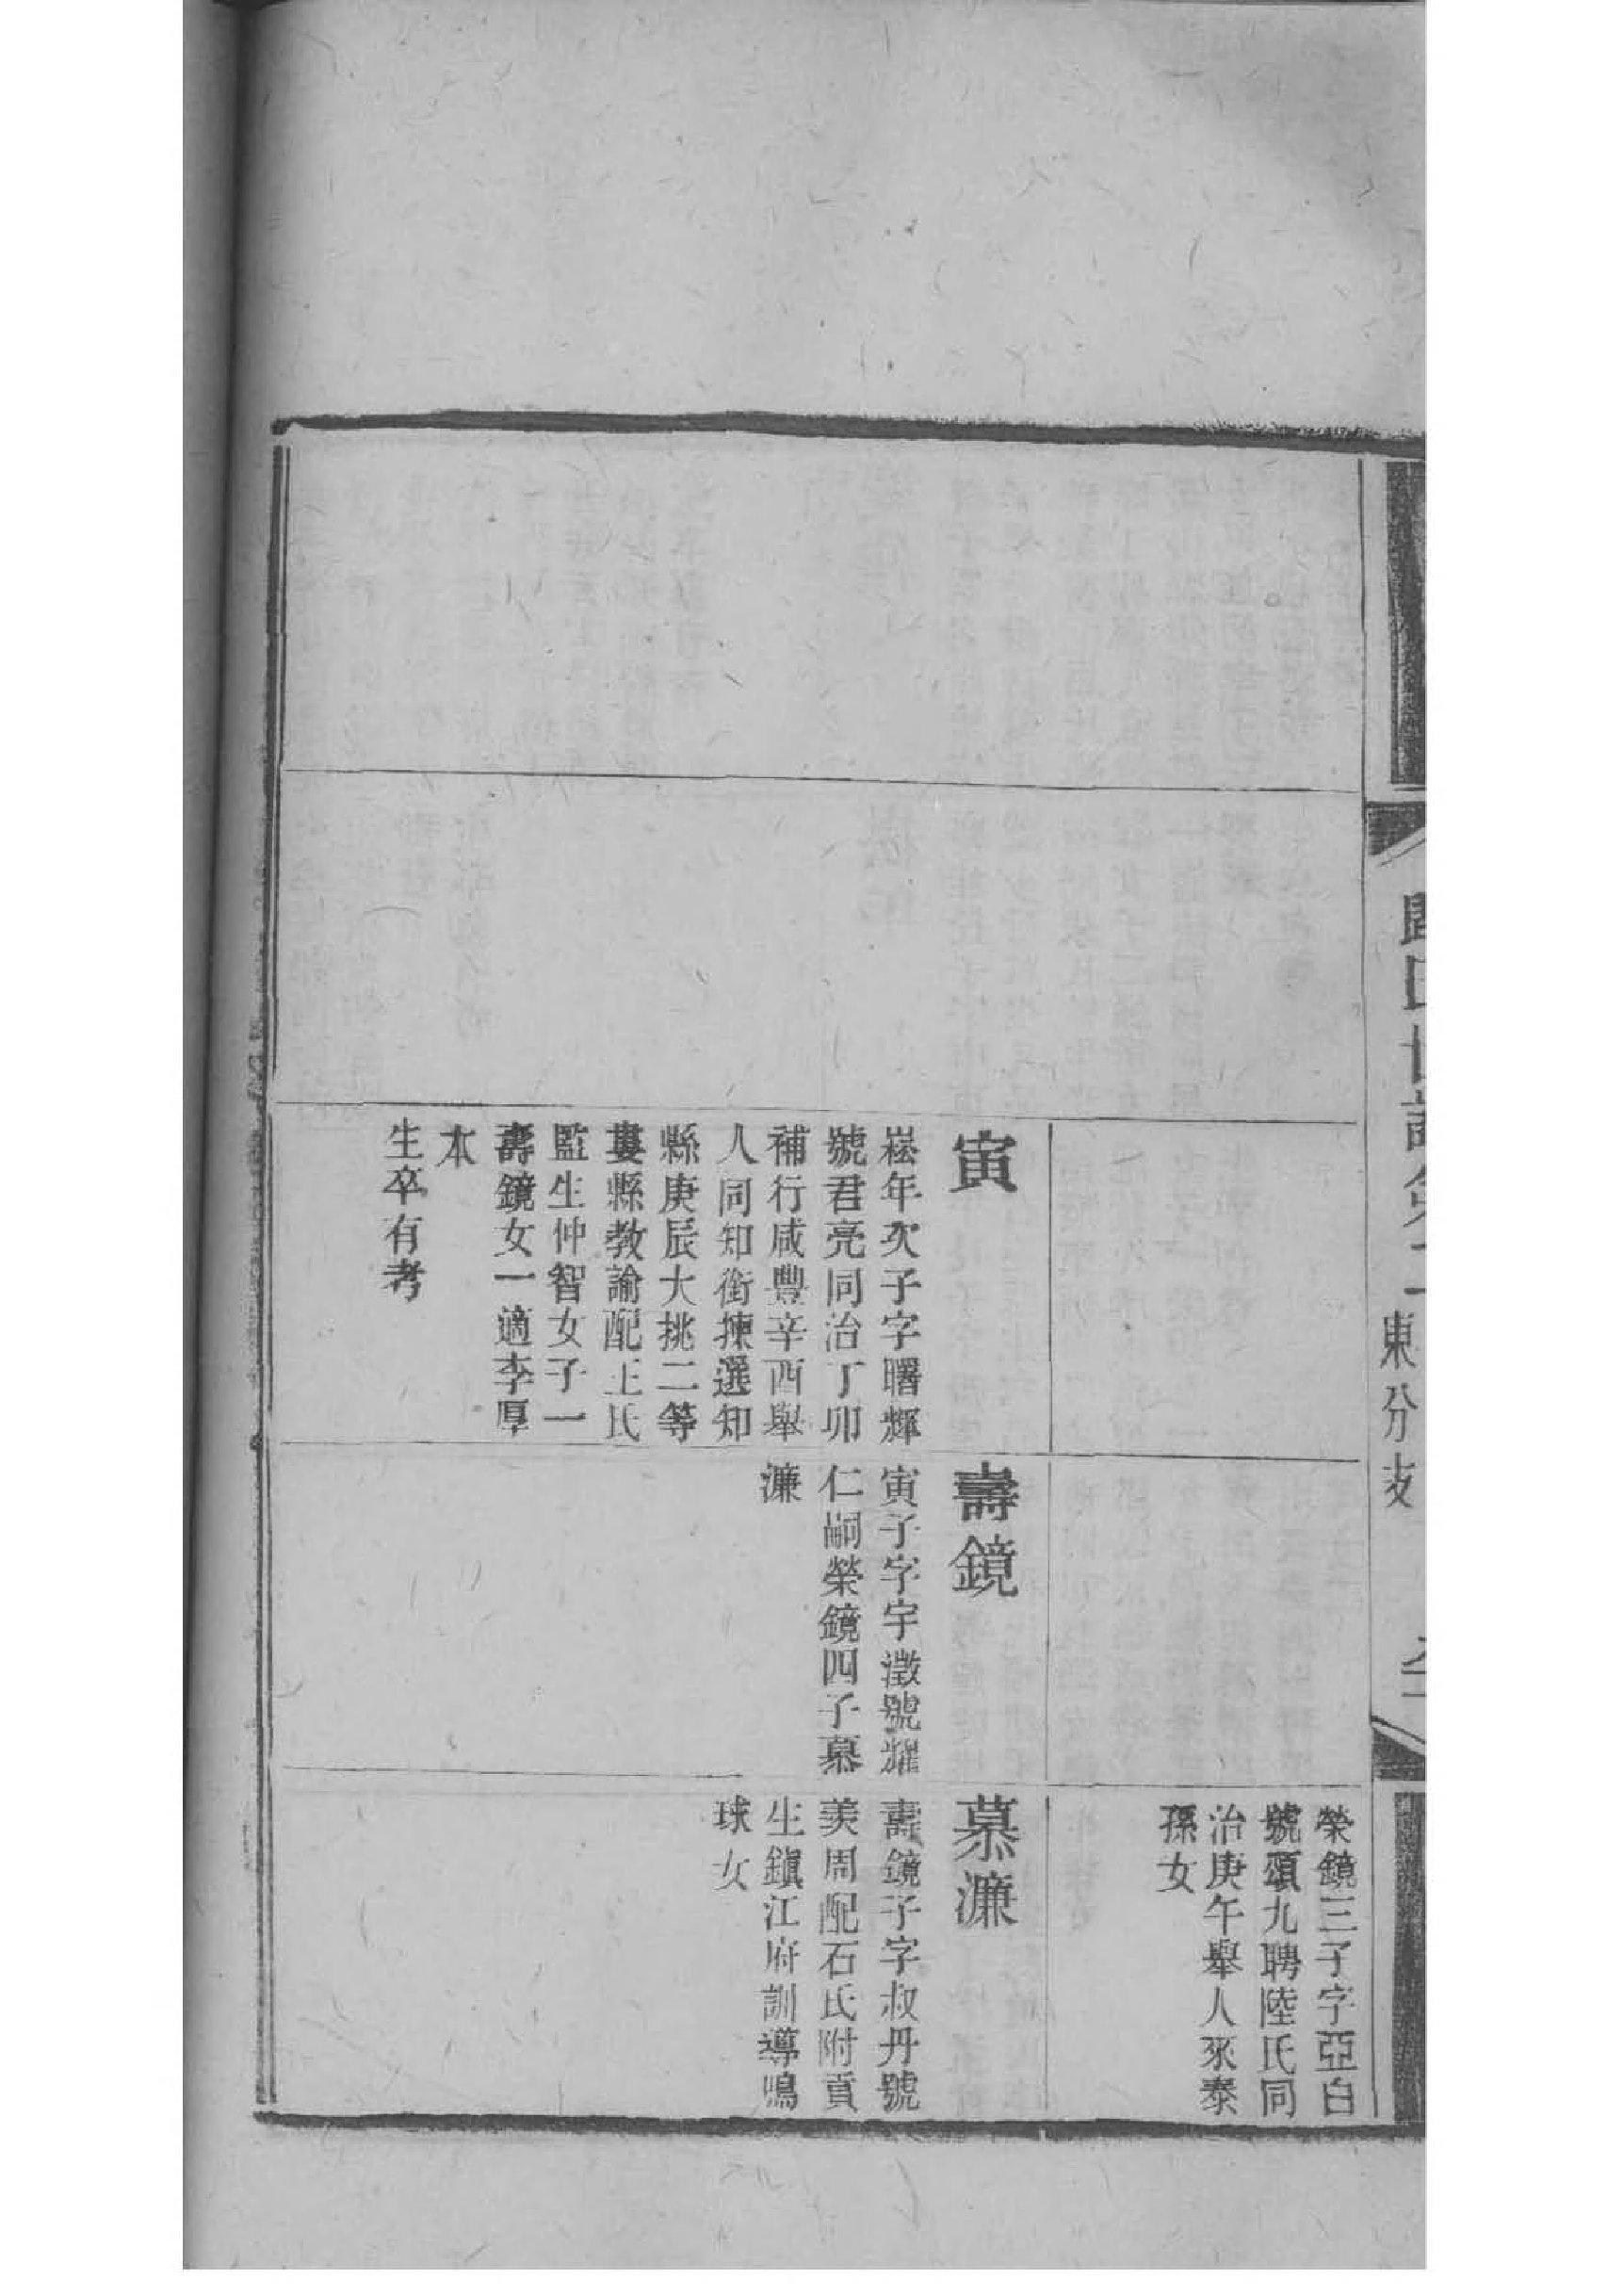 東分支
榮鏡三子字亞白
號頌九聘陸氏同
治庚午舉人來泰
孫女
寅
崧年次子字曙輝
號君亮同治丁卯
補行咸豐辛酉舉
人同知銜揀選知
縣庚辰大挑二等
婁縣教諭配王氏
監生仲智女子一
壽鏡女一適李厚
本
生卒有考
壽鏡
寅子字宇澂號耀
仁嗣榮鏡四子慕
濂
慕濂
壽鏡子字叔丹號
美周配石氏附貢
生鎭江府訓導鳴
球女